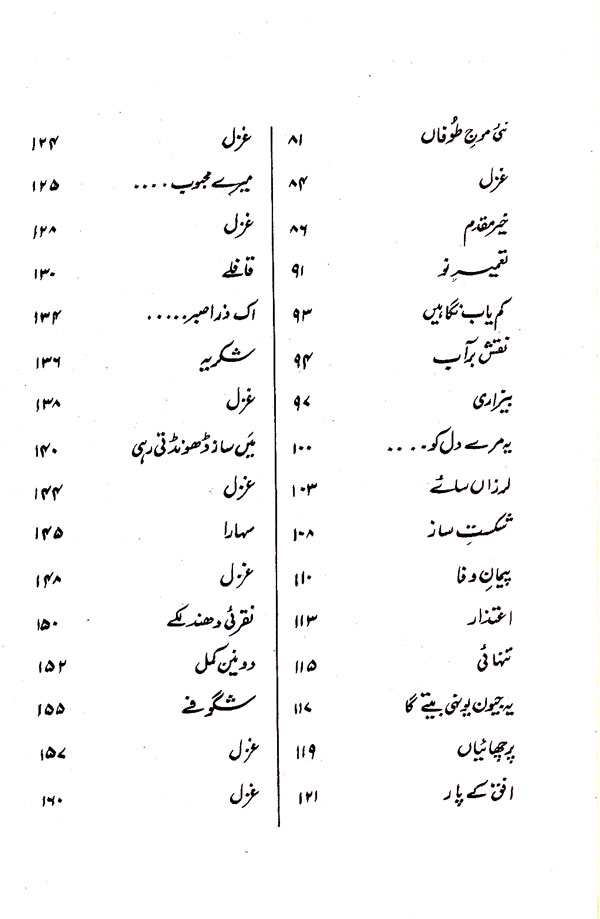 نئی موجِ طُوفاں ۸۱
غزل ۸۴
خیر مقدم ۸۶
تعمیرِ نو ۹۱
کم یاب نگاہیں ۹۳
نقش بر آب ۹۴
بیزاری ۹۷
یہ مرے دل کو .... ۱۰۰
لرزاں سائے ۱۰۳
شکستِ ساز ۱۰۸
پیمانِ وفا ۱۱۰
اعتذار ۱۱۳
تنہائی ۱۱۵
یہ جیون یونہی بیتے گا ۱۱۷
پرچھائیاں ۱۱۹
افق کے پار ۱۲۱
غزل ۱۲۴
میرے محبوب .... ۱۲۵
غزل ۱۲۸
قافلے ۱۳۰
اک ذرا صبر ..... ۱۳۴
شکریہ ۱۳۶
غزل ۱۳۸
مَیں ساز ڈھونڈتی رہی ۱۴۰
غزل ۱۴۴
سہارا ۱۴۵
غزل ۱۴۸
نقرئی دھندلکے ۱۵۰
دو نین کمل ۱۵۲
شگوفے ۱۵۵
غزل ۱۵۷
غزل ۱۶۰